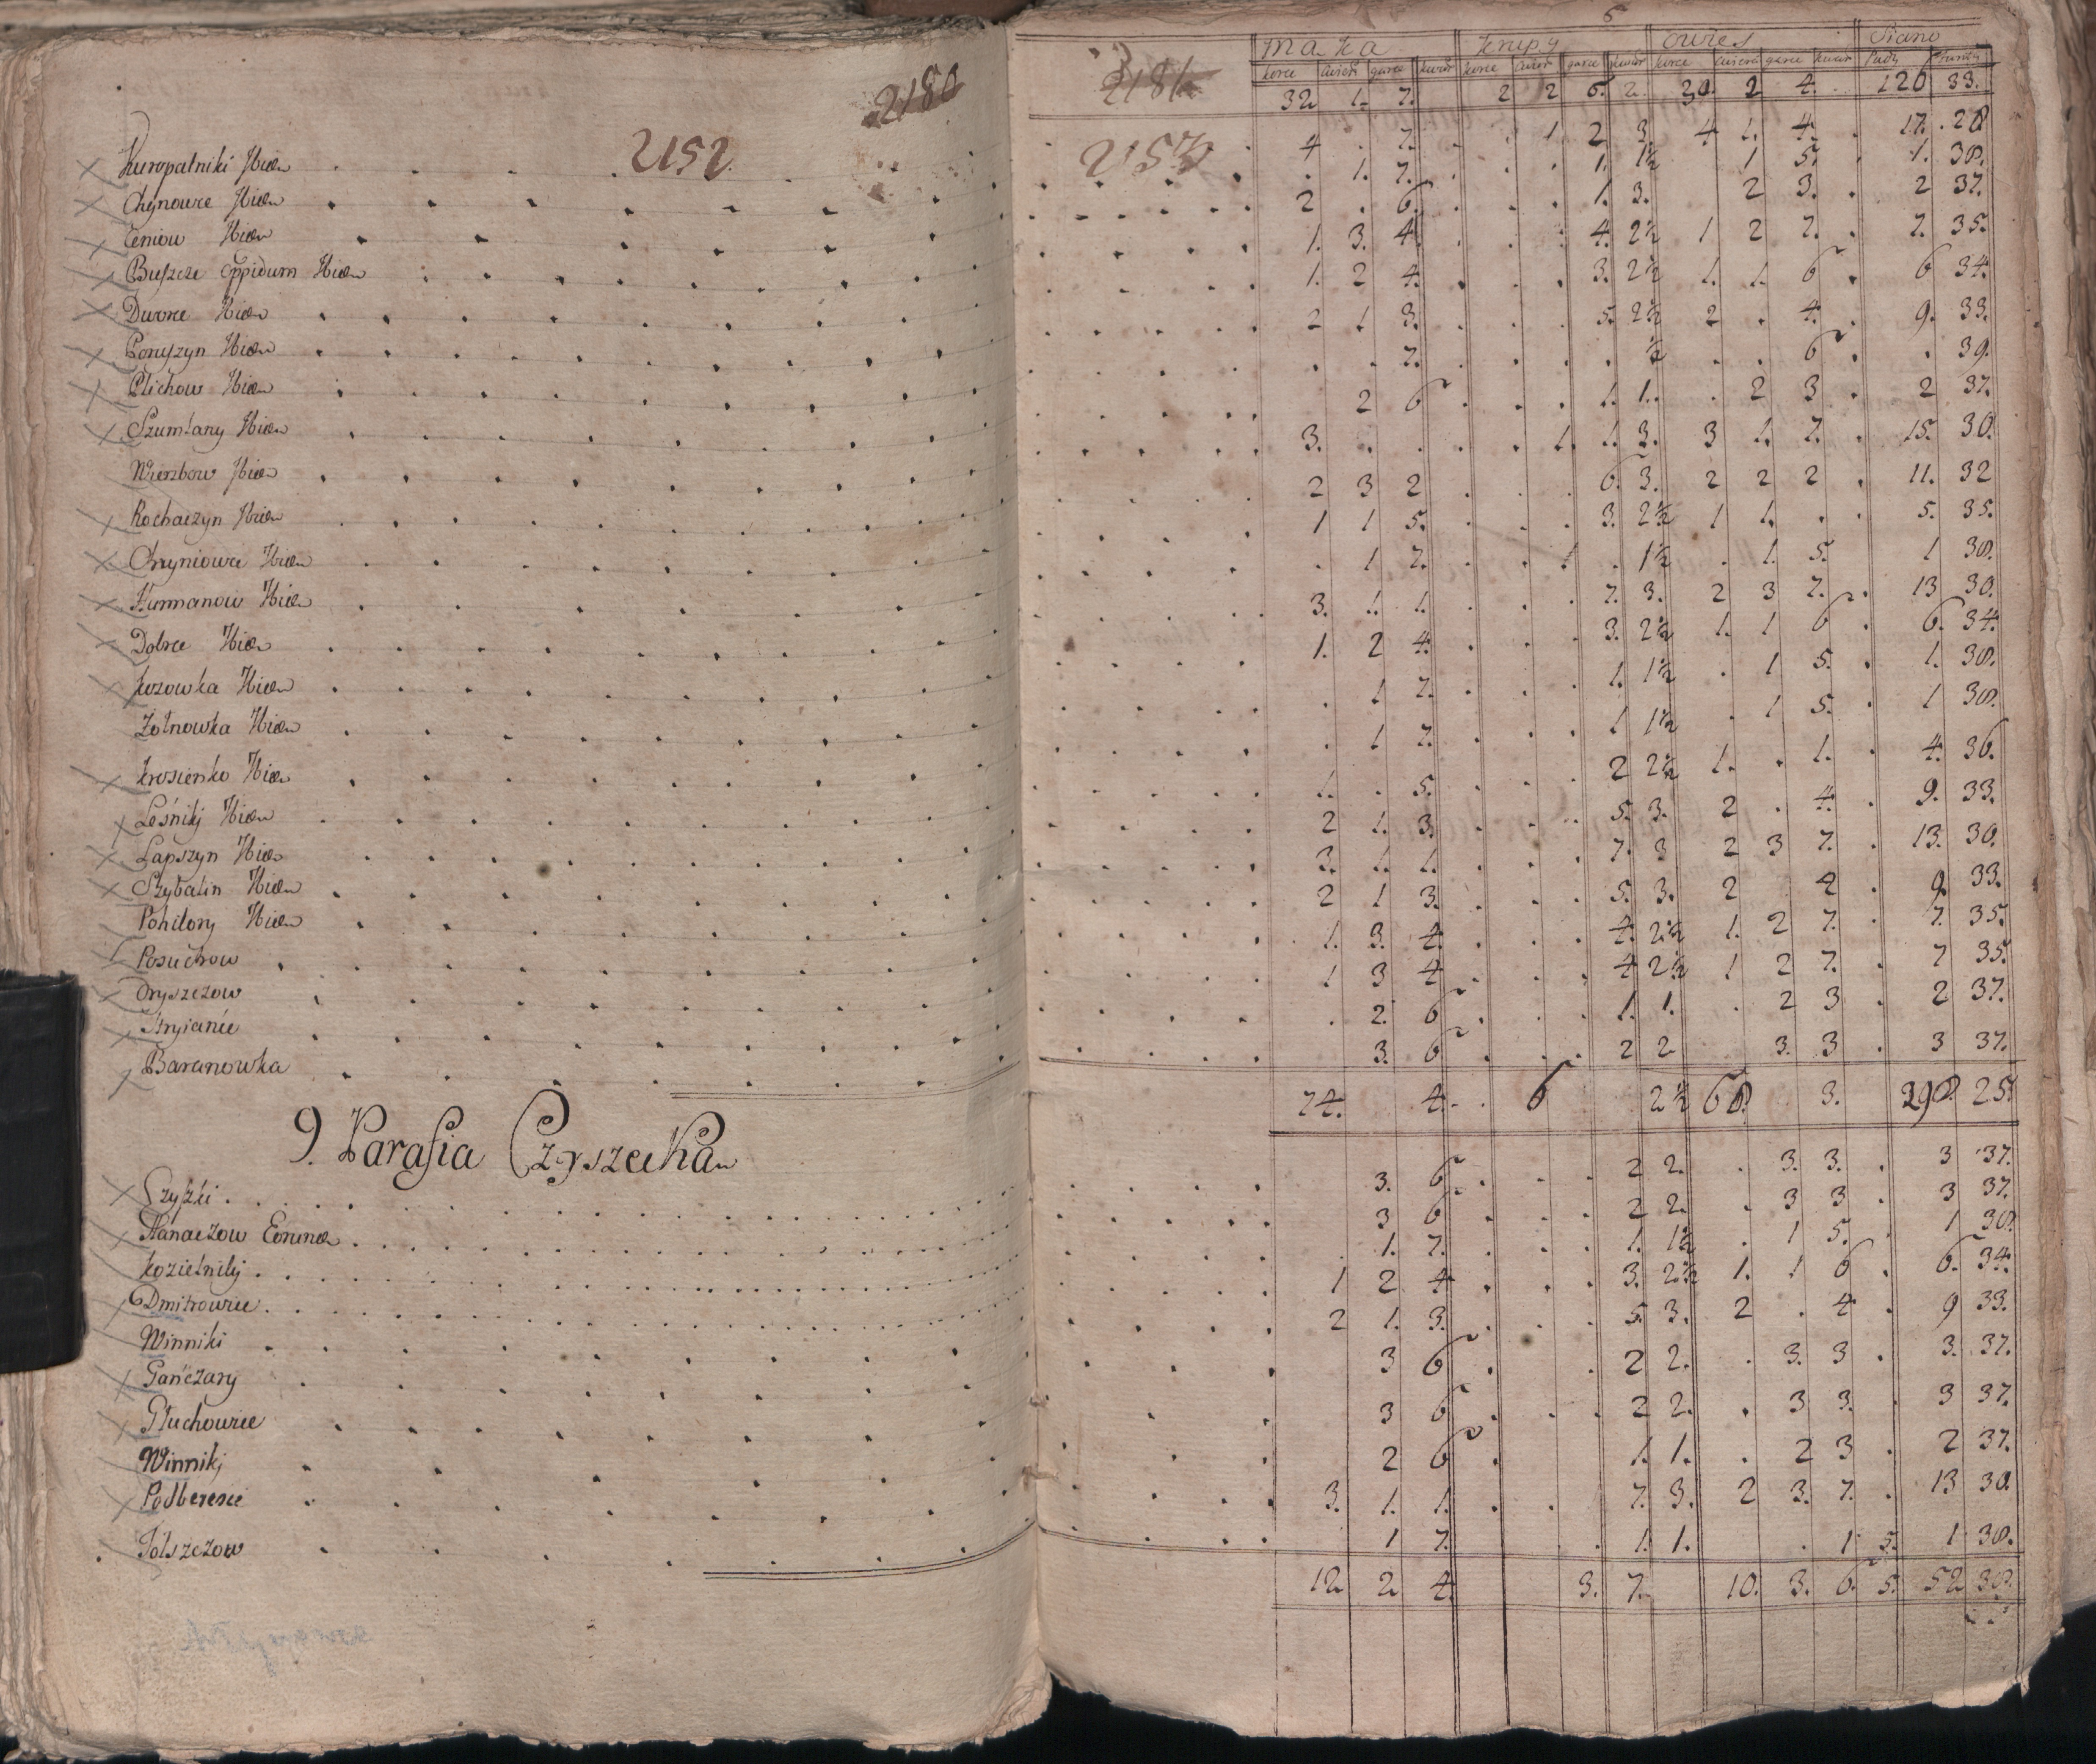 2180
2152.
Kuropatniki Hiær
Chynowce Hiær
Ceniow Hiær
Buszcze Oppidum Hiær
Dworce Hiær
Poruszyn Hiær
Plichow Hiær
Szumlany Hiær
Wierzbow Hiær
Rochaczyn Hiær
Chryniowce Hiær
Kurmanow Hiær
Hiær
Kozowka Hiær
Żołnowka Hiær
Krosienko Hiær
Leśnikj Hiær
Łapszyn Hiær
Szybalin Hiær
Pohilory Hiær
Posuchow
Oryszczow
Baranowka
9. Parafia Czyszecka
Czyszki
Hanaczow
Kozielnikj
Dmitrowice
Winniki
Gańczary
Głuchowice
Winnikj
Podberesce
Tołszczow
6
2181
2153
mąka krupy owies Siano
korce ćwierć garce kwar korce ćwierć garce kwar korce ćwierć garce kwar Pudy Funty
32 1. 7. 2 2 6. 2. 30. 2 4. 120 33.
4 . 7. . 1 2 3. 4 1. 4. . 17. 28
. 1. 7. . . 1. 1½ 1 5. . 1. 38.
2 . 6. . . 1. 3. 2 3. . 2 37.
1. 3. 4. . . 4. 2½ 1 2 7. . 7. 35.
1. 2 4. . . 3. 2½ 1. 1. 6 . 6 34.
2 1 3. . . 5. 2½ 2 . 4. . 9. 33.
. . 7. . . . ½ . . 6 . . 39.
2 6 . . . 1. 1. . 2 3 . 2 37.
3. . . . 1. 1. 3. 3 1. 7. . 15. 30.
2 3 2 . . 6. 3. 2 2 2 . 11. 32
1 1 5. . . 3. 2½ 1 1. . . 5. 35.
. 1 7. . . 1 . 1½ . 1. 5. 1 38.
3. 1. 1. . . 7. 3. 2 3 7. . 13 30.
1. 2 4. . . 3. 2½ 1. 1 6 . 6. 34.
. 1 7. . . 1. 1½ . 1 5. . 1. 38.
. 1 7. . . 1 1½ . 1 5. . 1 38.
1. . 5. . . 2 2½ 1. . 1. . 4. 36.
2 1. 3. . . 5. 3. 2 . 4. . 9. 33.
3. 1. 1. . . 7. 3 2 3 7. . 13. 30.
2 1 3. . . 5. 3. 2 4 . 9. 33.
1. 3. 4. . . 4. 2½ 1. 2 7. . 7. 35.
1 3 4. . . 4 2½ 1 2 7. . 7 35.
. 2. 6 . . 1. 1. . 2 3 . 2 37.
3. 6 . . 2 2 3. 3 . 3 37.
74. 4. . 6 2½ 68. 3. 298. 25.
3. 6 . . 2 2. . 3. 3. . 3 37.
3 6 . . 2 2. . 3 3 . 3 37.
. 1. 7. . . 1. 1½ . 1 5. 1 38.
1 2 4 . . 3. 2½ 1. 1 6 . 6. 34.
2 1. 3. . . 5. 3. 2 . 4 . 9 33.
3 6 . 2 2. . 3. 3 . 3. 37.
3 6 . . 2 2. . 3 3. . 3 37.
2 6 . 1. 1. . 2 3 . 2 37.
3. 1. 1. . . 7. 3. 2 3. 7. . 13 30.
1 7. . 1. 1. . 1 5. 1 38.
12 2 4. 3. 7. 10. 3. 6. 5. 52 30.